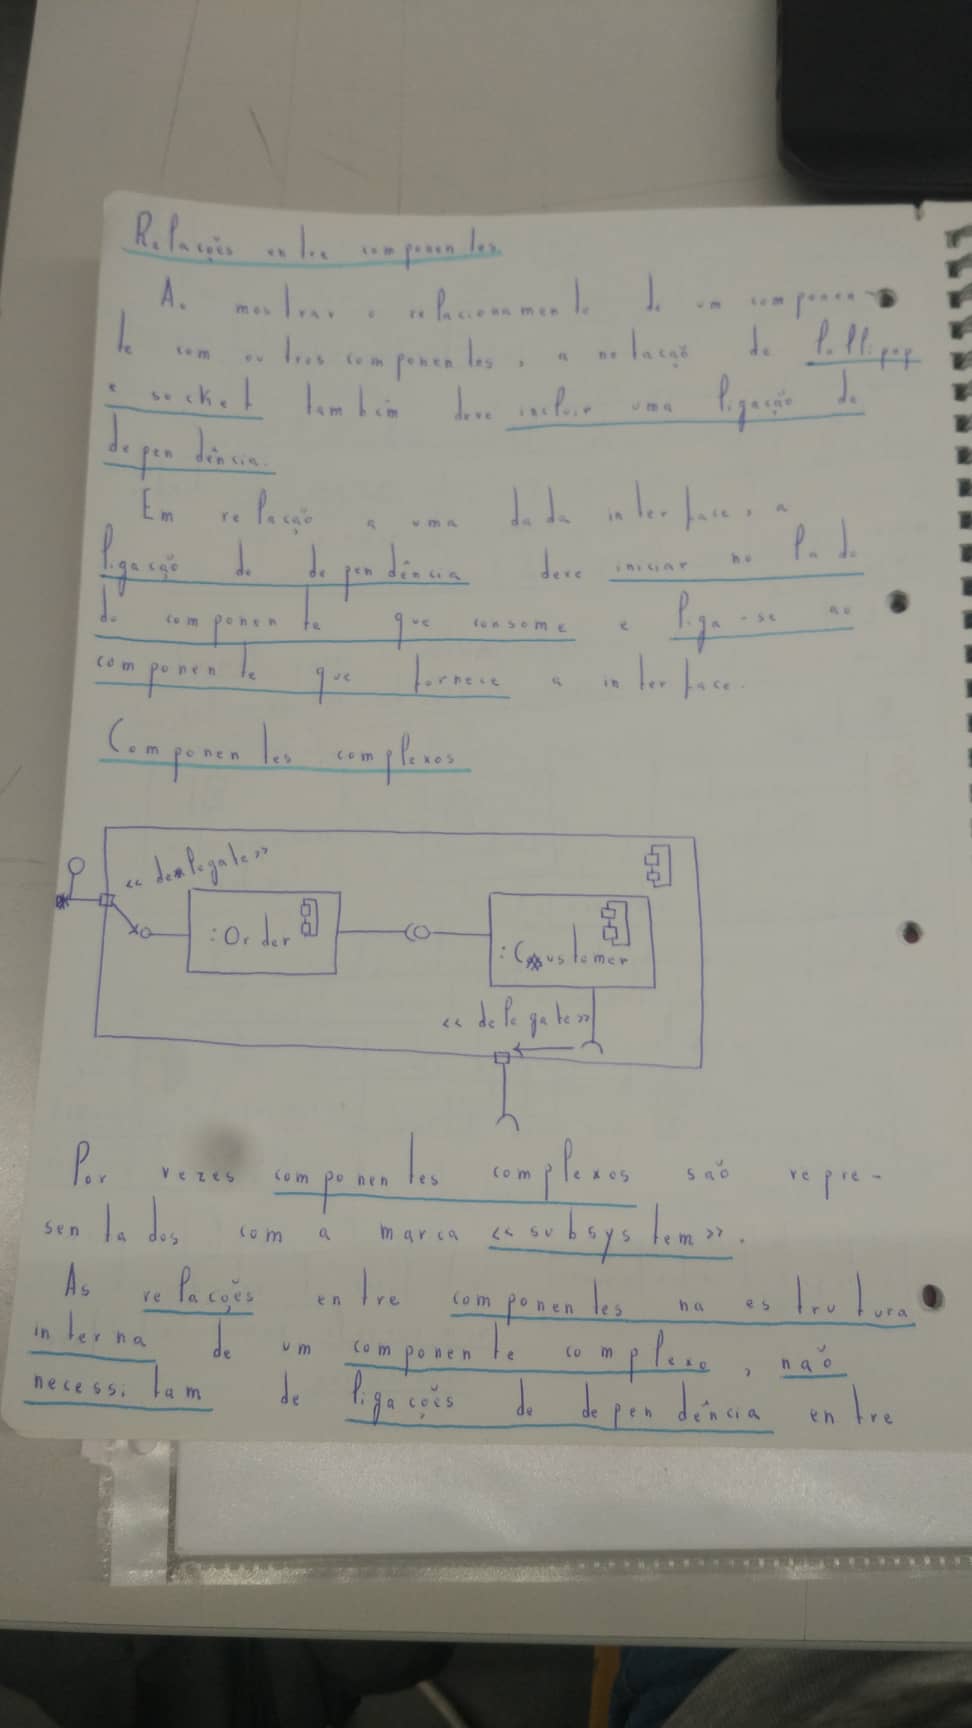 Relações entre componentes
Ao mostrar o relacionamento de um componen-
te com outros componentes, a notação de lollipop
e socket também deve incluir uma ligação de
dependência.
Em relação a uma dada interface, a
ligação de dependência deve iniciar no lado
do componente que consome e liga-se ao
componente que fornece a interface.
Componentes complexos
<< delegate >>
:Order
:Customer
<< delegate >>
Por vezes componentes complexos são repre-
sentados com a marca << subsystem >>.
As relações entre componentes na estrutura
interna de um componente complexo, não
necessitam de ligações de dependência entre